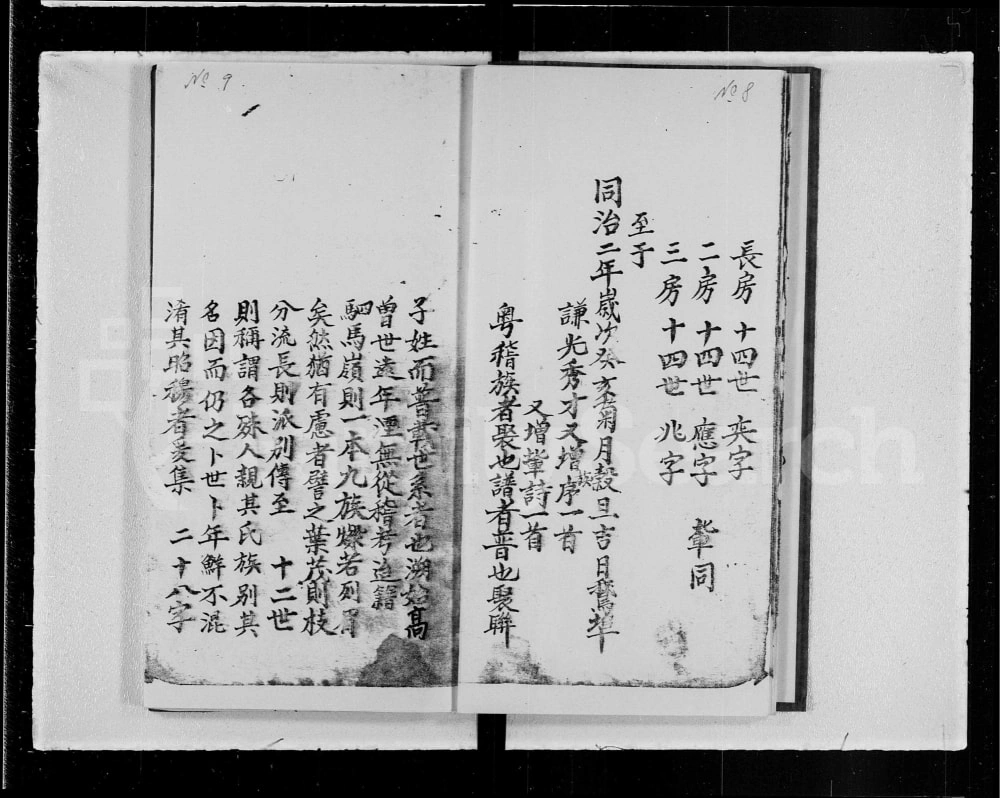 № 8
長房 十四世 奕字
二房 十四世 應字 輩同
三房 十四世 兆字
至于
同治二年歲次癸亥菊月穀旦吉日 埠
謙光秀才又增族序一首
又增輩詩一首
粤稽族者聚也譜者普也聚聨
№ 9
子姓而普載世系者也溯始高
曾世遠年湮無從稽考迨籍
駟馬嶺則一本九族燦若列眉
矣然猶有慮者譬之葉茂則枝
分流長則派別傳至 十二世
則稱謂各殊人親其氏族别其
名因而仍之卜世卜年鮮不混
淆其昭穆者爰集 二十八字